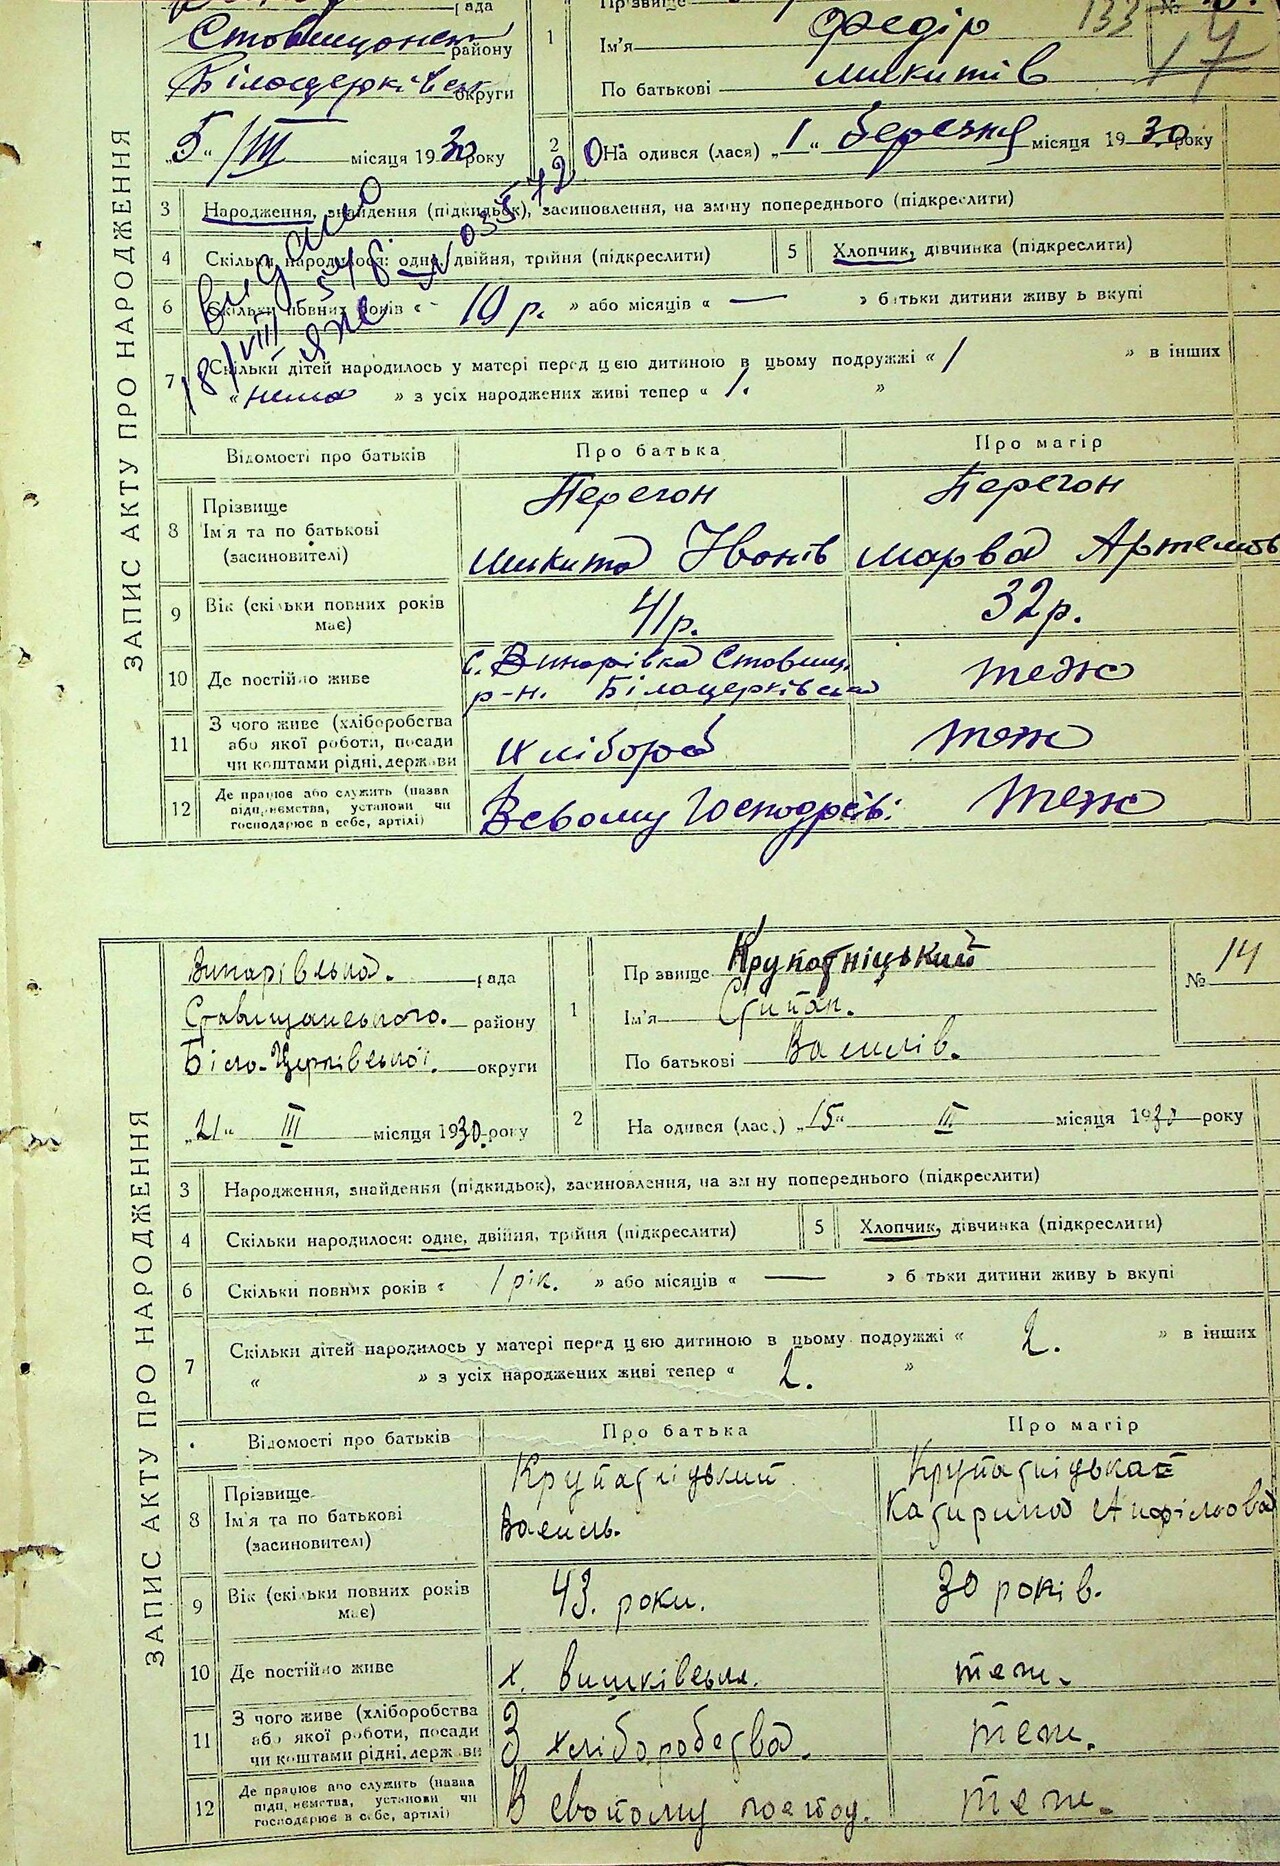 рада
Прізвище
133
№
17
Ставищанськ району
1
Ім'я Федір
Білоцерківськ округи
По батькові Микитів
„5“ /III місяця 1930 року
2
На одився (лася) „1“ березня місяця 1930 року
ЗАПИС АКТУ ПРО НАРОДЖЕННЯ
3 Народження, знайдення (підкидьок), засиновлення, на зміну попереднього (підкреслити)
4 Скільки народилося: одне, двійня, трійня (підкреслити)
5 Хлопчик, дівчинка (підкреслити)
видано
18/VIII
6 Скільки повних років « 10 р. » або місяців « — » батьки дитини живу ь вкупі
7 Скільки дітей народилось у матері перед цією дитиною в цьому подружжі « 1 » в інших
« нема » з усіх народжених живі тепер « 1. »
Відомості про батьків Про батька Про матір
8 Прізвище Ім'я та по батькові (засиновителі)
Перегон Перегон
Микита Іванів Марва Артемов
9 Вік (скільки повних років має) 41 р. 32 р.
10 Де постійно живе
с. Винарівка Ставищ. теж
р-н. Білоцерківська
11 З чого живе (хліборобства або якої роботи, посади чи коштами рідні, держави Хлібороб теж
12 Де працює або служить (назва підприємства, установи чи господарює в себе, артілі) Всвому Господрсві: теж
Винарівська. рада
Ставищанського. району
Біло-Церківської. округи
„21“ III місяця 1930 року
1
Пр звище Крупатніцький
Ім'я Стипан.
По батькові Василів.
№ 14
2 На одився (лас.) „15“ III місяця 1930 року
ЗАПИС АКТУ ПРО НАРОДЖЕННЯ
3 Народження, знайдення (підкидьок), засиновлення, на зміну попереднього (підкреслити)
4 Скільки народилося: одне, двійня, трійня (підкреслити)
5 Хлопчик, дівчинка (підкреслити)
6 Скільки повних років « 1 рік. » або місяців « — » батьки дитини живу ь вкупі
7 Скільки дітей народилось у матері перед цією дитиною в цьому подружжі « 2. » в інших
« » з усіх народжених живі тепер « 2. »
Відомості про батьків Про батька Про матір
8 Прізвище Ім'я та по батькові (засиновителі)
Крупатніцький Крупатніцька
Василь. Катирина
9 Вік (скільки повних років має) 43. роки. 30 років.
10 Де постійно живе х. теж.
11 З чого живе (хліборобства або якої роботи, посади чи коштами рідні, держави З хліборобства. теж.
12 Де працює або служить (назва підприємства, установи чи господарює в себе, артілі) В свойому господ. теж.